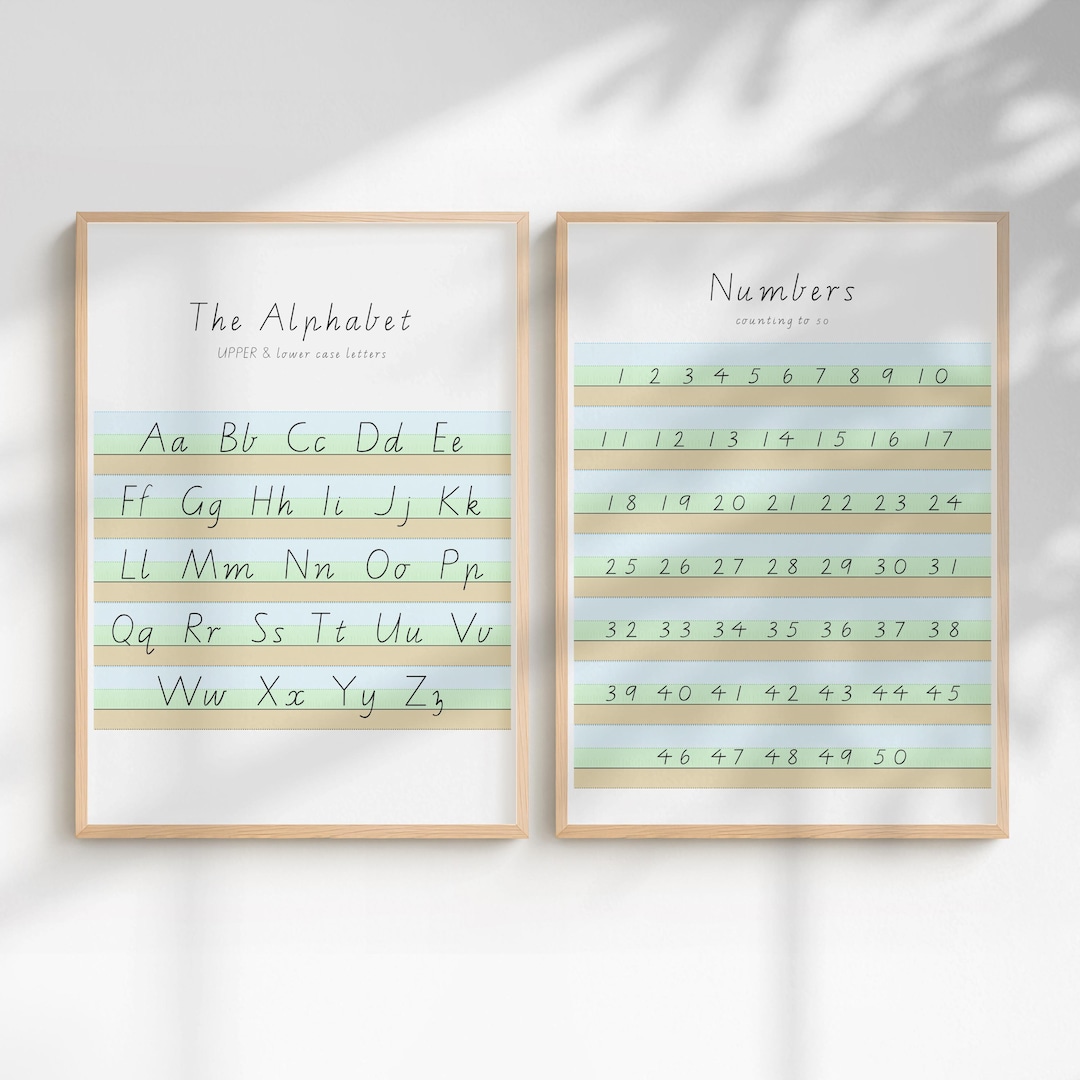 The Alphabet
UPPER & lower case letters
Aa Bb Cc Dd Ee
Ff Gg Hh Ii Jj Kk
Ll Mm Nn Oo Pp
Qq Rr Ss Tt Uu Vv
Ww Xx Yy Zz
Numbers
counting to 50
1 2 3 4 5 6 7 8 9 10
11 12 13 14 15 16 17
18 19 20 21 22 23 24
25 26 27 28 29 30 31
32 33 34 35 36 37 38
39 40 41 42 43 44 45
46 47 48 49 50